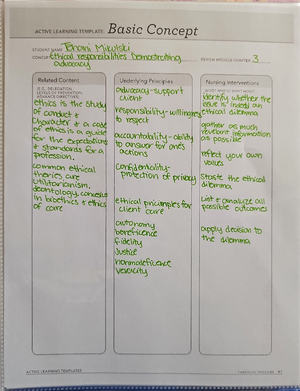 ACTIVE LEARNING TEMPLATE: Basic Concept
STUDENT NAME Tehani Mikulski
CONCEPT ethical responsibilities: Demonstrating advocacy
REVIEW MODULE CHAPTER 3
Related Content
(E.G., DELEGATION,
LEVELS OF PREVENTION,
ADVANCE DIRECTIVES)
ethics is the study
of conduct &
character & a code
of ethics is a guide
for the expectations
& standards for a
profession.
common ethical
theories are
utilitarianism,
deontology, consensus
in bioethics & ethics
of care
Underlying Principles
advocacy - support
client
responsibility - willingness
to respect
accountability - ability
to answer for one's
actions
confidentiality -
protection of privacy
ethical principles for
client care
autonomy
beneficence
fidelity
Justice
nonmaleficence
veracity
Nursing Interventions
identify whether the
issue is indeed an
ethical dilemma
gather as much
relevant information
as possible
reflect your own
values
State the ethical
dilemma
List & analyze all
possible outcomes
apply decision to
the dilemma
ACTIVE LEARNING TEMPLATES